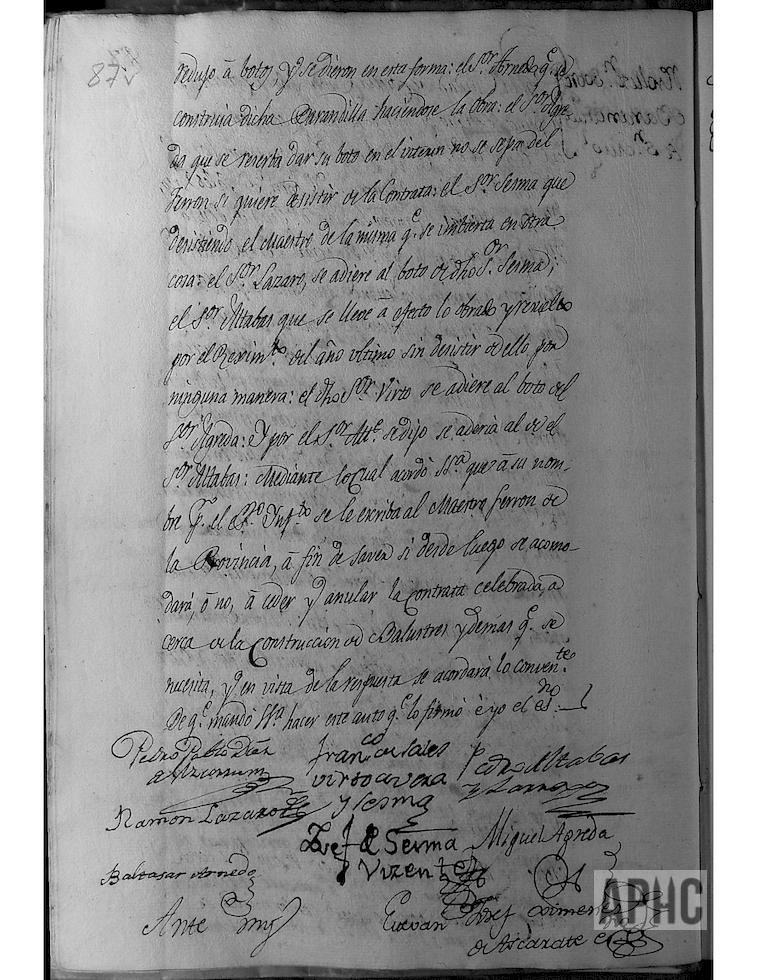 redujo â botos, y se dieron en esta forma: el S.or Arnedo q.e se
construia dicha Barandilla haciendose la obra: el S.or Agre-
da que se reserba dar su boto en el interin no se sepa del
Ferron si quiere desistir de la Contrata: el S.or Serma que
desistiendo el Maestro de la misma q.e se imbierta en otra
cosa: el S.or Lazaro, se adiere al boto de dho S.or Serma;
el S.or Altabas que se lleve â efecto lo obrado y resuelto
por el Reximto del año ultimo sin desistir de ello por
ninguna manera: el dho S.or Virto se adiere al boto del
S.or Agreda: Y por el S.or Alc.e se dijo se aderia al de el
S.or Altabas: Mediante lo qual acordó SS.a que â su nom-
bre p.r el se le escriba al Maestro Ferron de
la Provincia, â fin de saver si desde luego se acomo-
dará, ô no, â ceder y anular la Contrata celebrada, a
cerca de la Construccion de Balustres y demas q.e se
necesita, y en vista de la respuesta se acordará lo conven.te
De q.e mandó SS.a hacer este auto q.e lo firmó è yo el es.no
Pedro Pablo Fran.co de Sales Pedro Altabas
virto y
Ramon Lazaro y Lesma
Josef Serma Miguel Agreda
Baltasar Arnedo Vizente
Ante mi Estevan Josef Ximenez
de Ascarate es.no
APHC